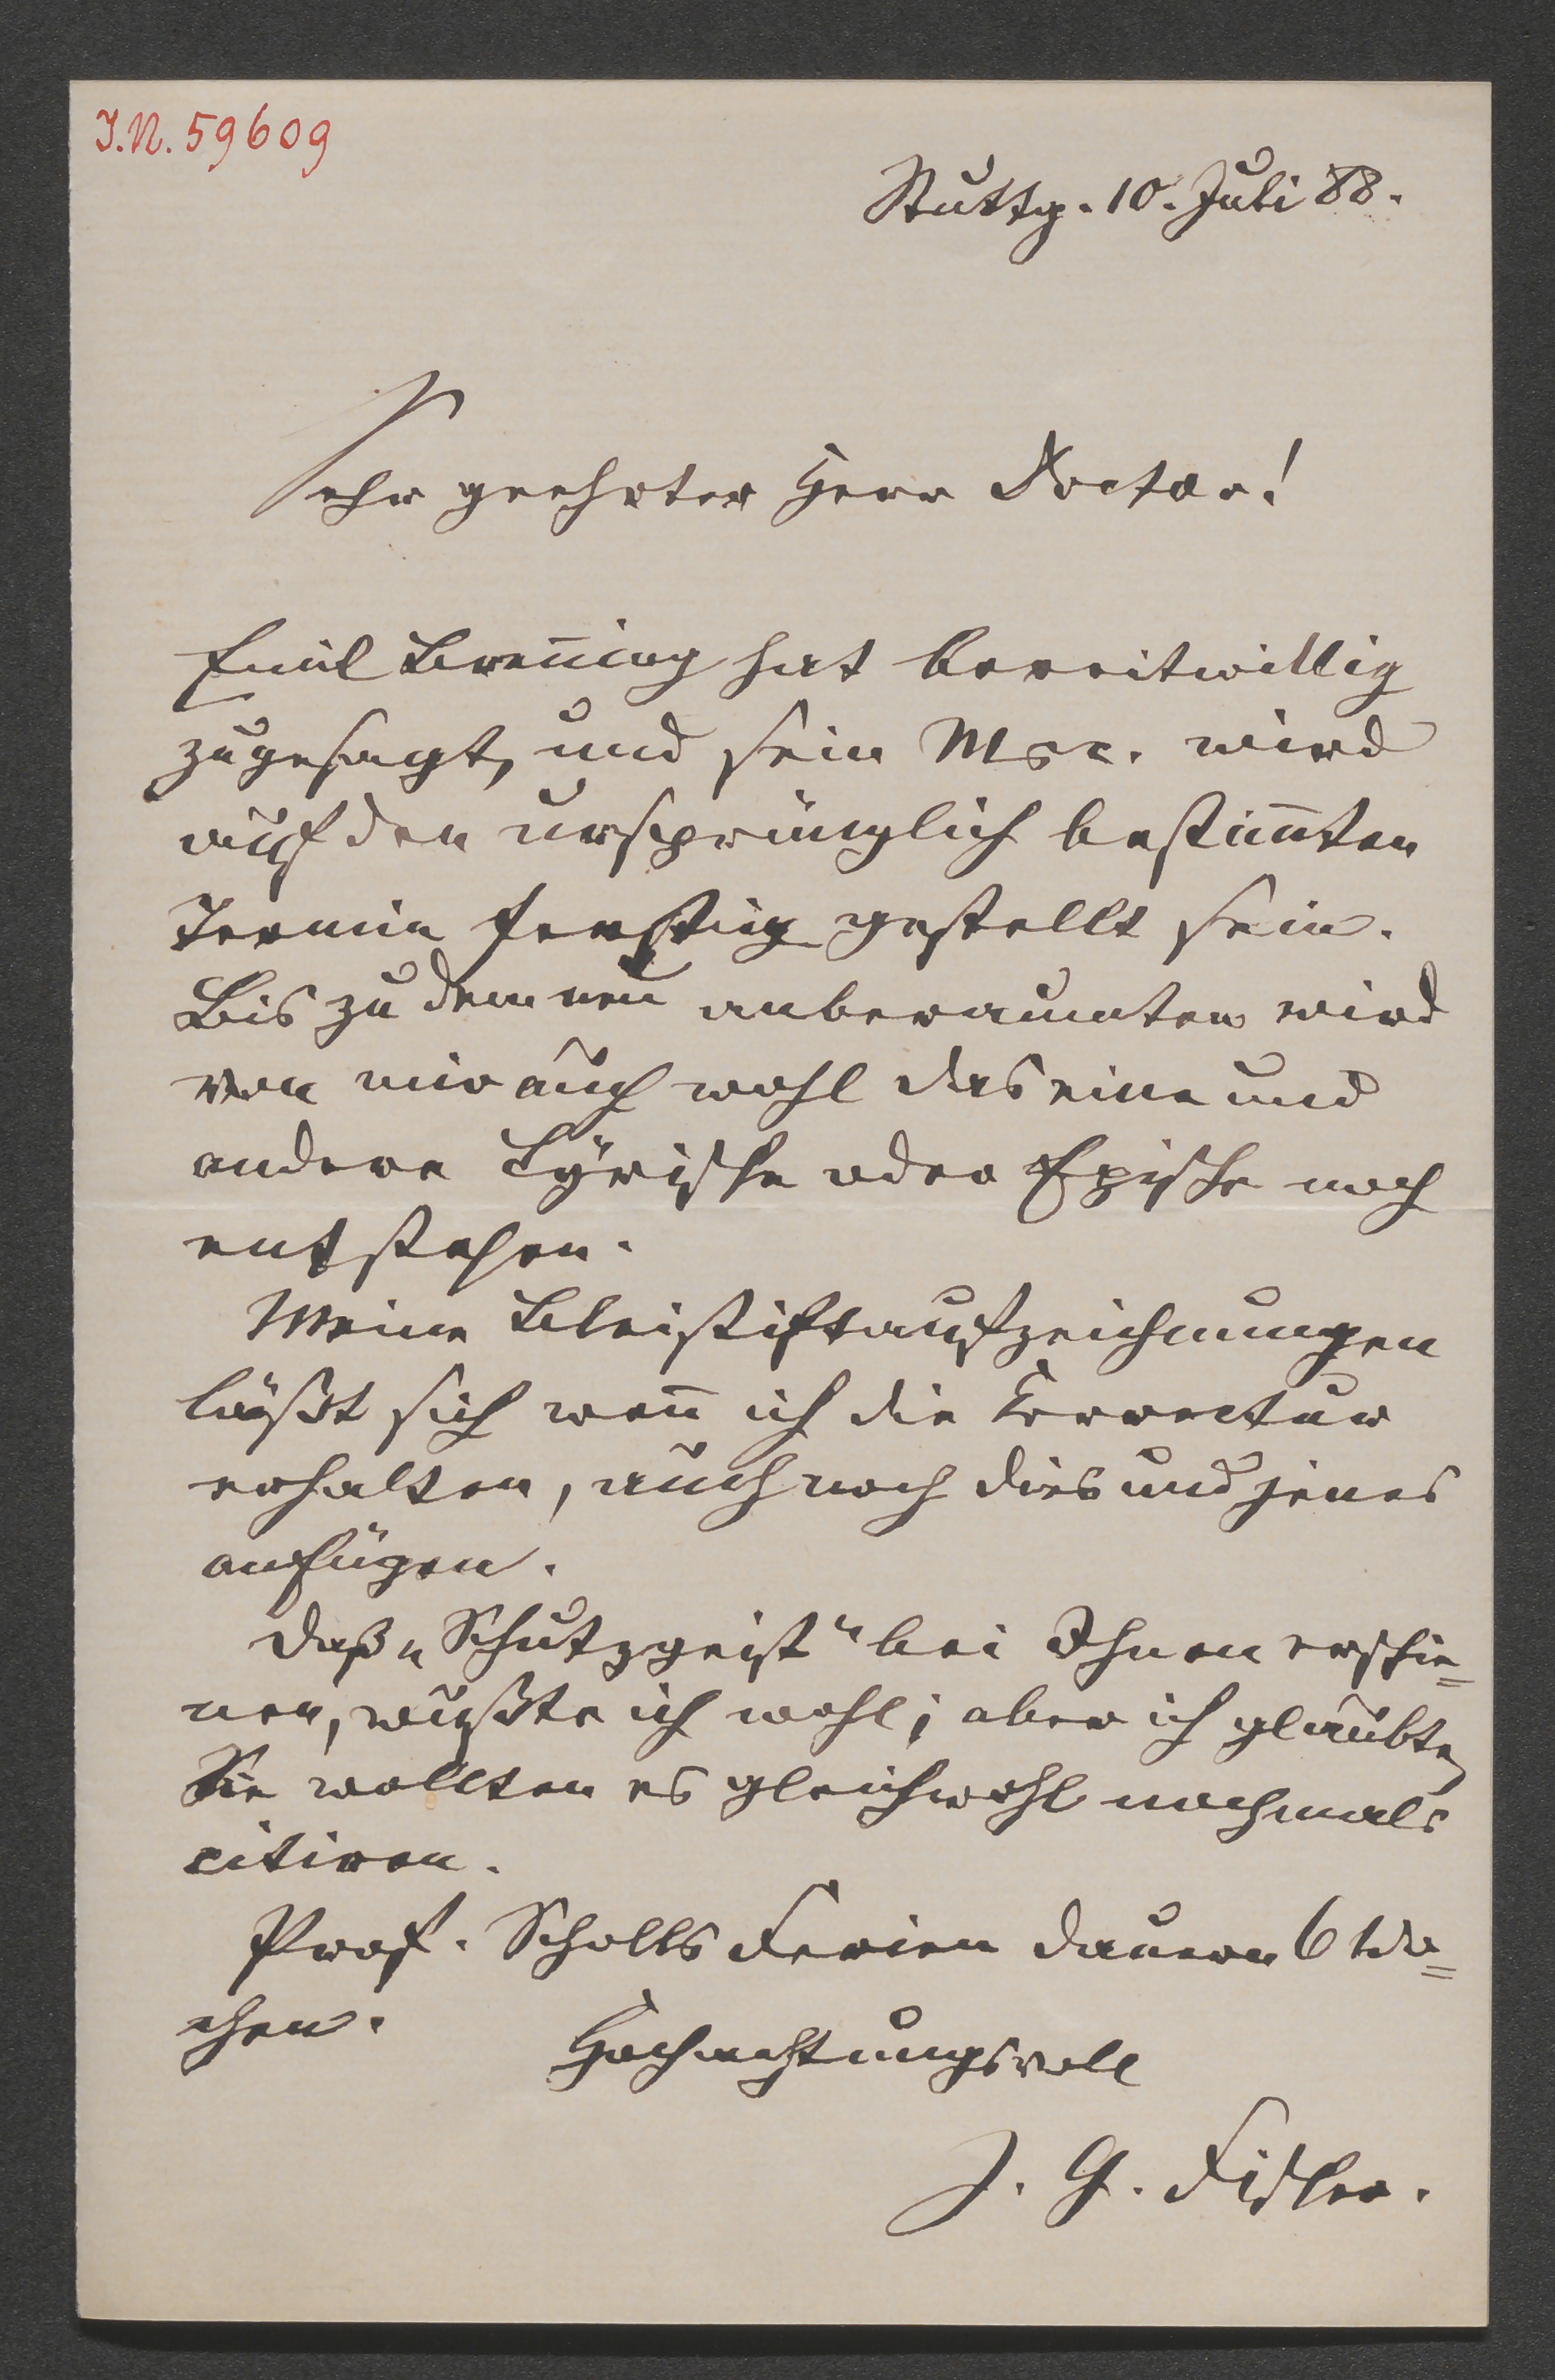 I.N. 59609
Stuttg. 10. Juli 88.
Sehr geehrter Herr Doctor!
Emil Breñing hat bereitwillig
zugesagt, und sein Msc. wird
auf den ursprünglich bestim̃ten
Termin fertig gestellt sein.
Bis zu dem neu anberaumten wird
von mir auch wohl das eine und
andere Lyrische oder Epische noch
entstehen.
Meine Bleistiftaufzeichnungen
läßt sich weñ ich die Correctur
erhalten, auch noch dies und jenes
anfügen.
Daß „Schutzgeist“ bei Ihnen erschie=
nen, wußte ich wohl; aber ich glaubte,
Sie wollten es gleichwohl nochmals
citiren.
Prof. Scholls Ferien dauern 6 Wo=
chen.
Hochachtungsvoll
J. G. Fischer.